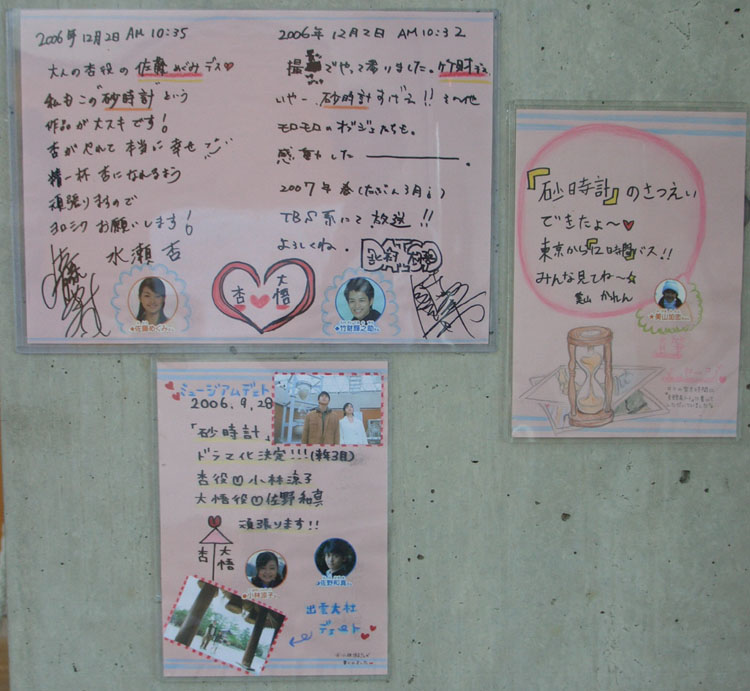 2006年12月2日 AM 10:35
大人の杏役の佐藤めぐみデス♥
私もこの"砂時計"という
作品が大スキです!
杏がやれて本当に幸せ
精一杯杏になれるよう
頑張りますので
ヨロシクお願いします!
水瀬杏
佐藤めぐみ
2006年12月2日 AM 10:32
撮 でやって参りました。竹財です
いやー、砂時計すげェ!!
モロモロのオブジェたちも。
感動した————。
2007年春(たぶん3月)
TBS系にて放送!!
よろしくね。
杏♥大悟
竹財輝之助
『砂時計』のさつえい
できたよ〜♥
東京から『12時間』バス!!
みんな見てね〜☆
美山 かれん
美山加恋
ミュージアムデート
2006.9.28
「砂時計」
ドラマ化決定!!!(来年3月)
杏役♡小林涼子
大悟役♡佐野和真
頑張ります!!
杏 大悟
小林涼子
佐野和真
出雲大社
デート